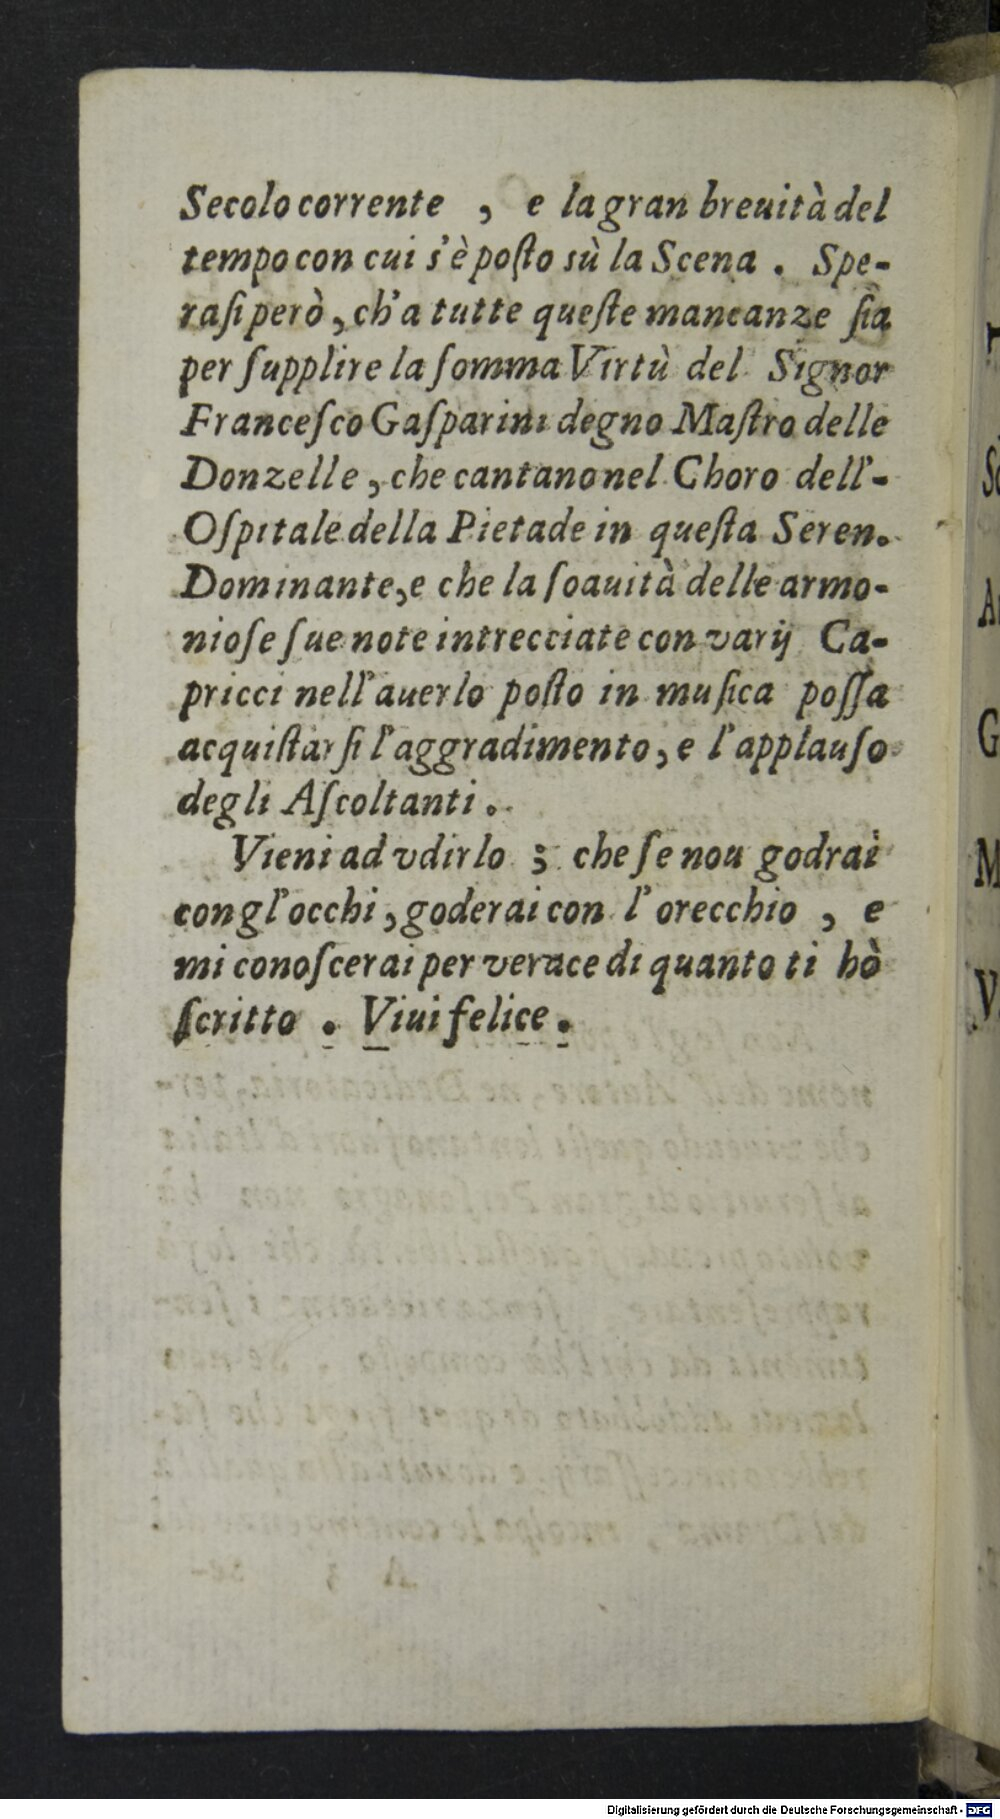 Secolo corrente , e la gran breuità del
tempo con cui s'è poſto sù la Scena . Spe-
raſi però, ch'a tutte queſte mancanze ſia
per ſupplire la ſomma Virtù del Signor
Franceſco Gaſparini degno Maſtro delle
Donzelle, che cantano nel Choro dell'-
Oſpitale della Pietade in queſta Seren.
Dominante, e che la ſoauità delle armo-
nioſe ſue note intrecciate con varij Ca-
pricci nell'auerlo poſto in muſica poſſa
acquiſtarſi l'aggradimento, e l'applauſo
degli Aſcoltanti.
Vieni ad vdirlo ; che ſe nou godrai
con gl'occhi, goderai con l'orecchio , e
mi conoſcerai per verace di quanto ti hò
ſcritto . Viui felice.
Digitalisierung gefördert durch die Deutsche Forschungsgemeinschaft - DFG